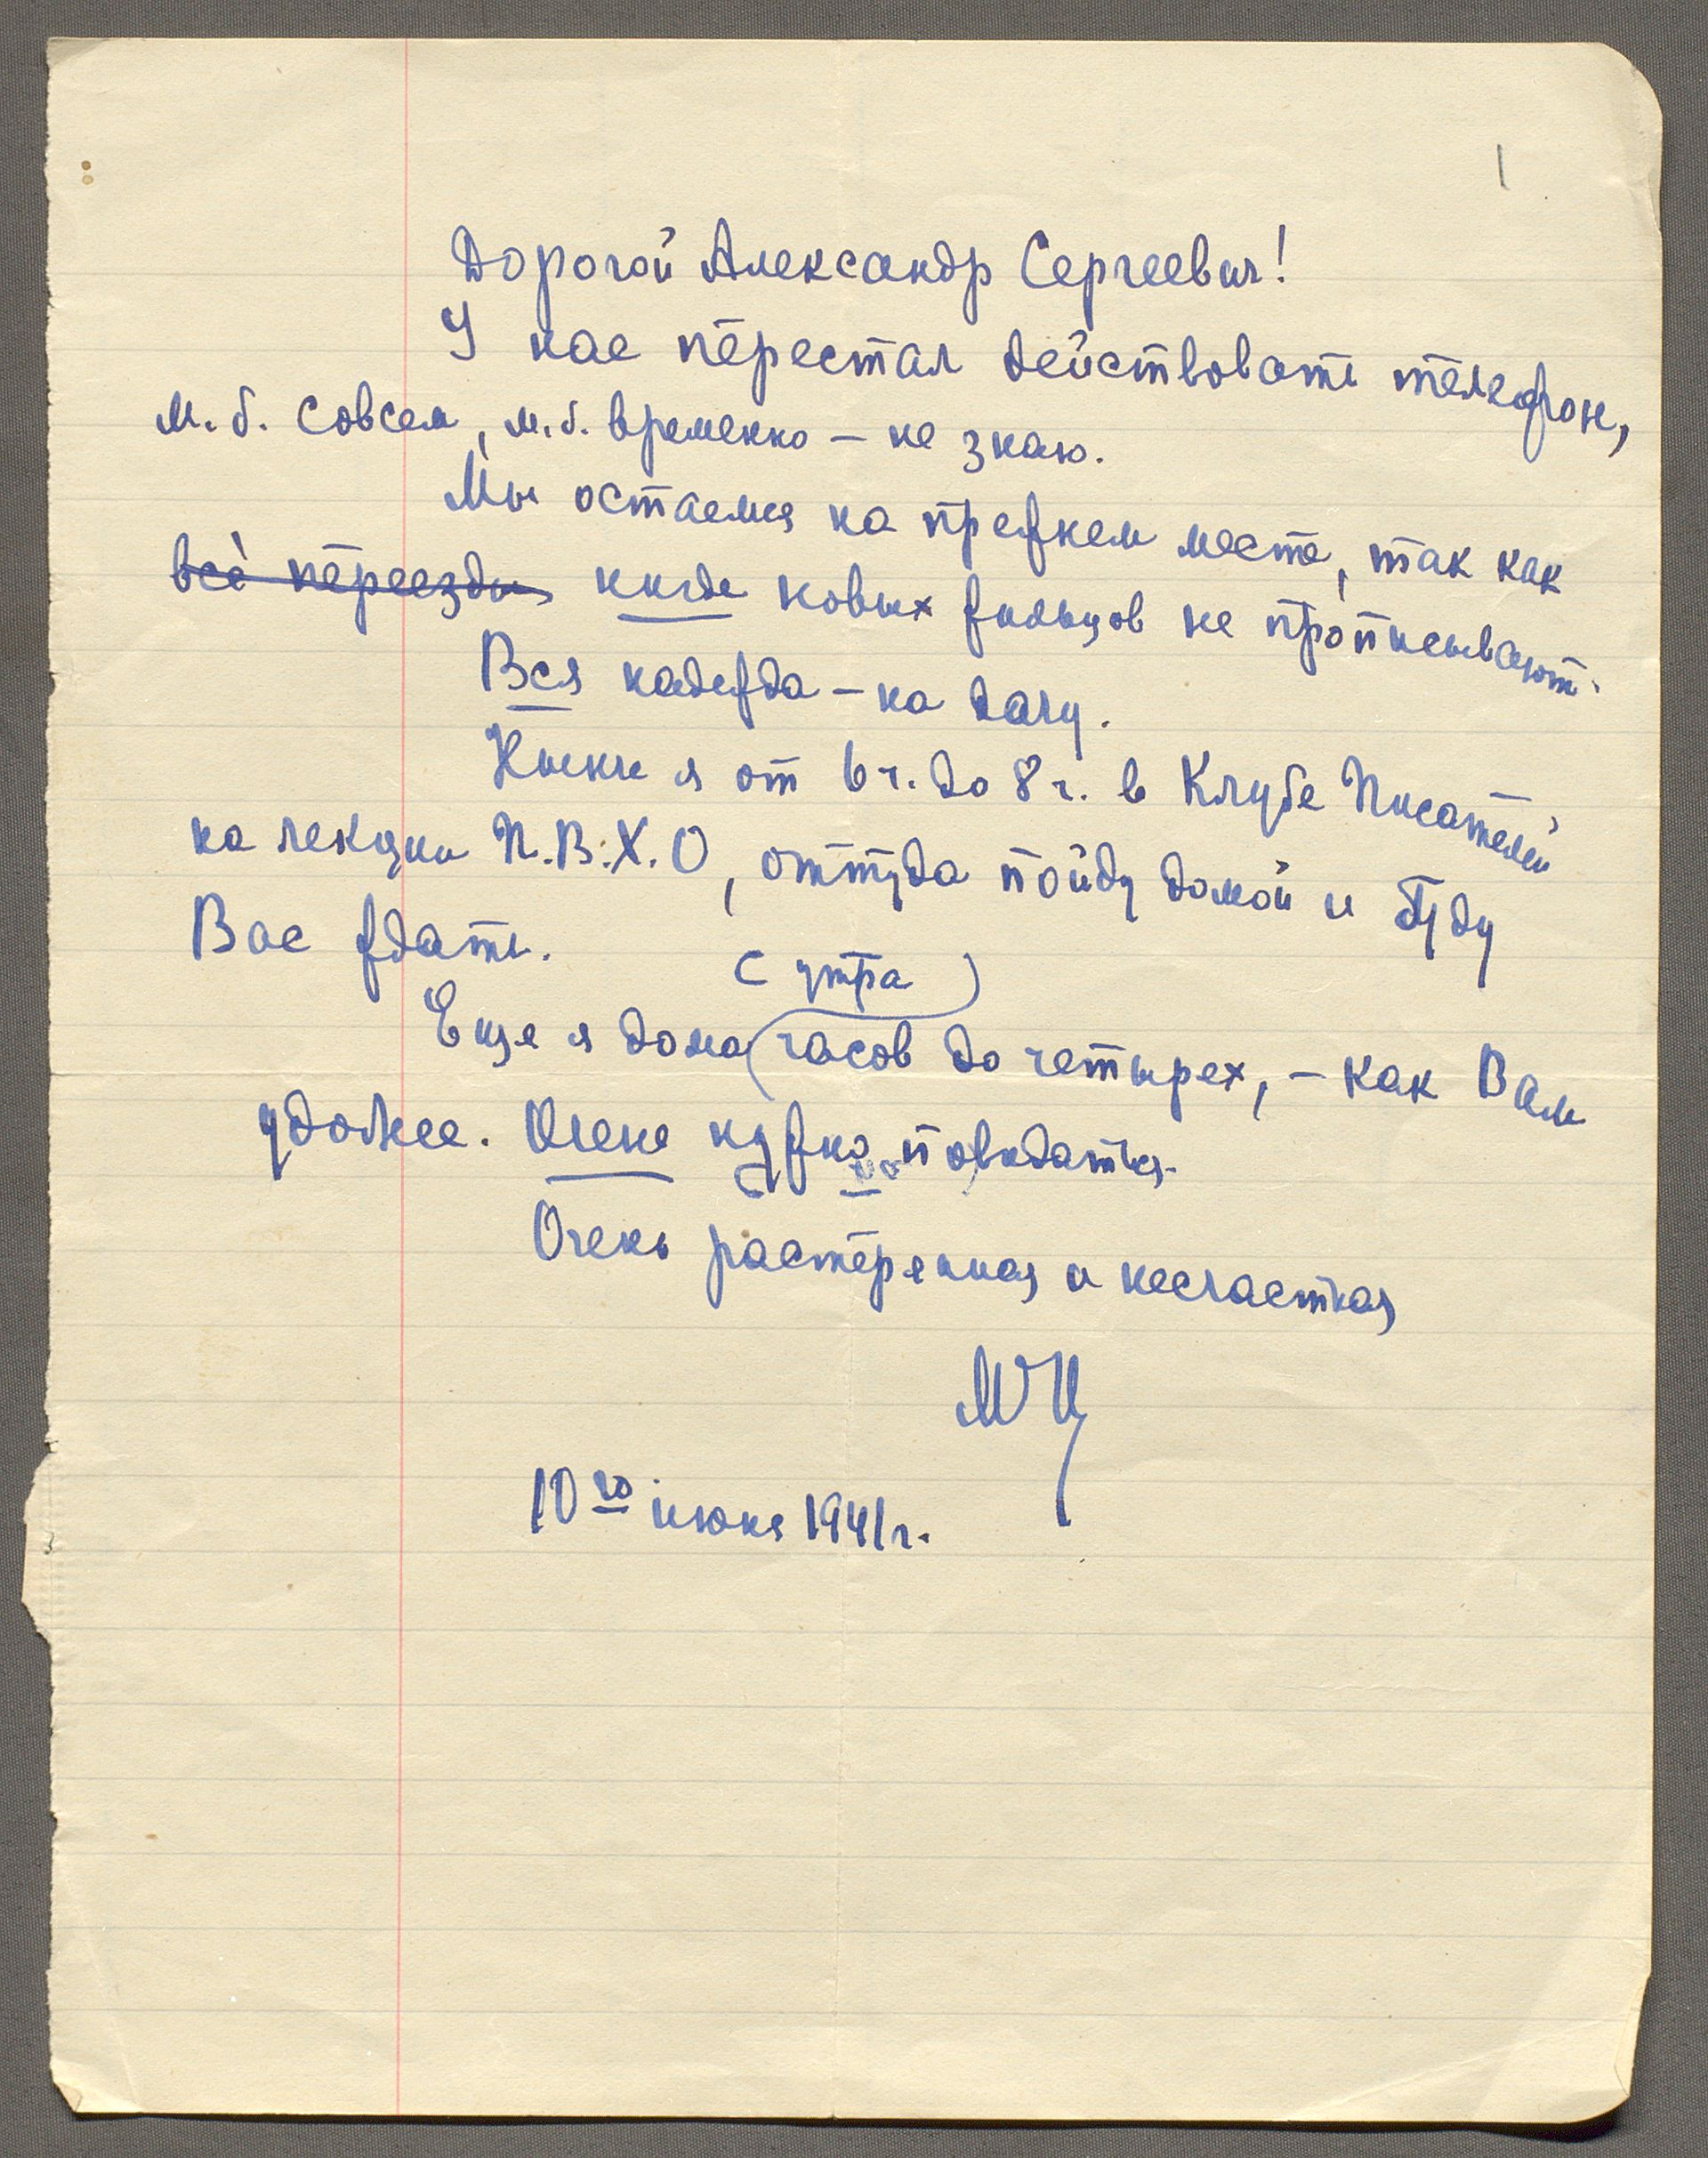 1
Дорогой Александр Сергеевич!
У нас перестал действовать телефон,
м.б. совсем, м.б. временно — не знаю.
Мы остаемся на прежнем месте, так как
всё переезды нигде новых жильцов не прописывают.
Вся надежда — на дачу.
Нынче я от 6 ч. до 8 ч. в Клубе Писателей
на лекции П.В.Х.О, оттуда пойду домой и буду
Вас ждать.
(утра)
Еще я дома часов до четырех, — как Вам
удобнее. Очень нужно повидаться.
Очень растерянная и несчастная
МЦ
10го июня 1941г.